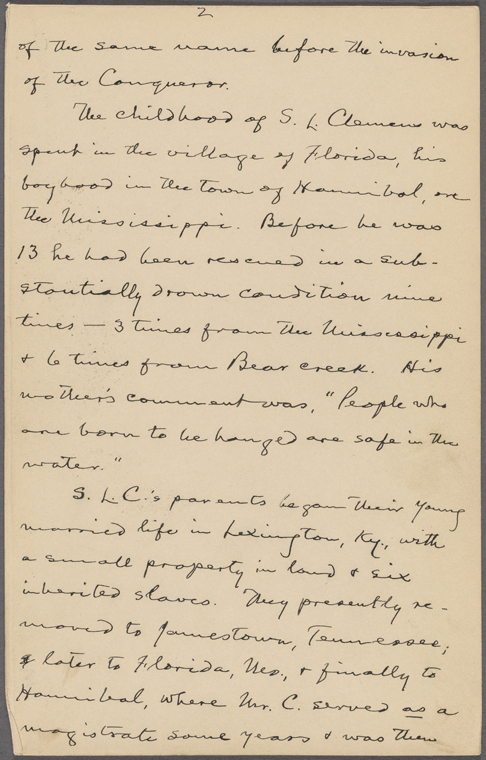 2
of the same name before the invasion
of the Conqueror.
The childhood of S. L. Clemens was
spent in the village of Florida, his
boyhood in the town of Hannibal, on
the Mississippi. Before he was
13 he had been rescued in a sub-
stantially drown condition nine
times — 3 times from the Mississippi
& 6 times from Bear creek. His
mother's comment was, "People who
are born to be hanged are safe in the
water."
S. L. C.'s parents began their young
married life in Lexington, Ky., with
a small property in land & six
inherited slaves. They presently re-
moved to Jamestown, Tennessee,
& later to Florida, Mo., & finally to
Hannibal, where Mr. C. served as a
magistrate some years & was then